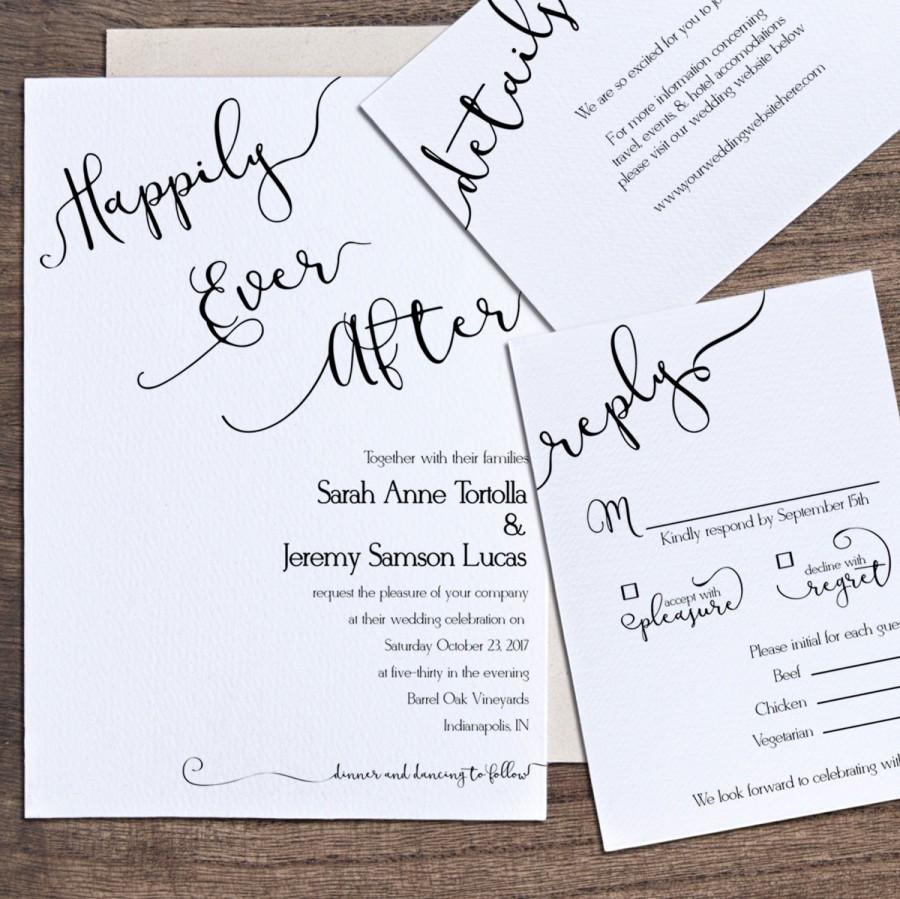 Happily
Ever
After
Together with their families
Sarah Anne Tortolla
&
Jeremy Samson Lucas
request the pleasure of your company
at their wedding celebration on
Saturday October 23, 2017
at five-thirty in the evening
Barrel Oak Vineyards
Indianapolis, IN
dinner and dancing to follow
details
We are so excited for you to
For more information concerning
travel, events & hotel accomodations
please visit our wedding website below
www.yourweddingwebsitehere.com
reply
M
Kindly respond by September 15th
accept with
pleasure
decline with
regret
Please initial for each
Beef
Chicken
Vegetarian
We look forward to celebrating